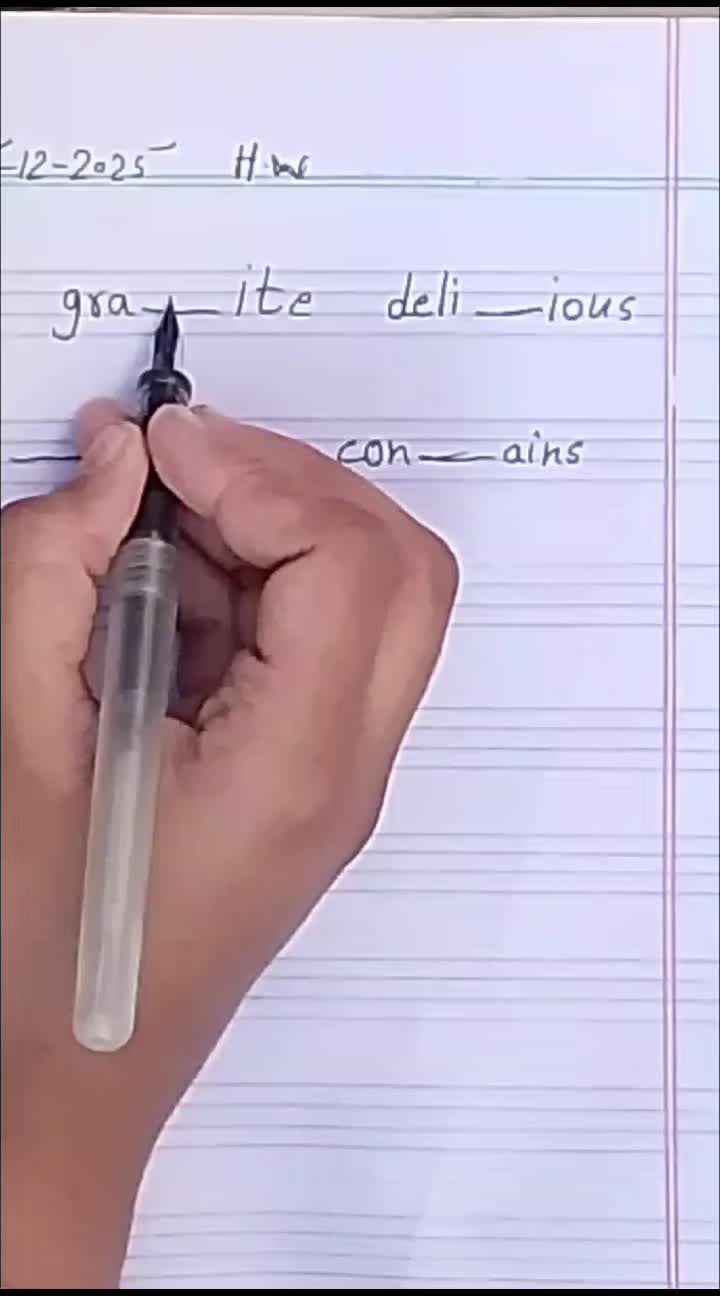 -12-2025 H.w
gra__ite deli__ious
__ con__ains